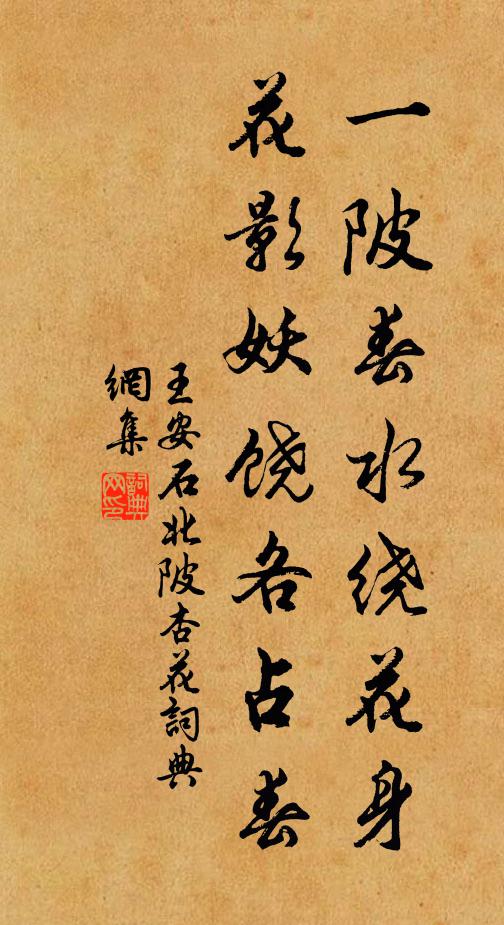 一陂春水绕花身
花影妖饶各占春
王安石北陂杏花詞典
網集
詞典
网印